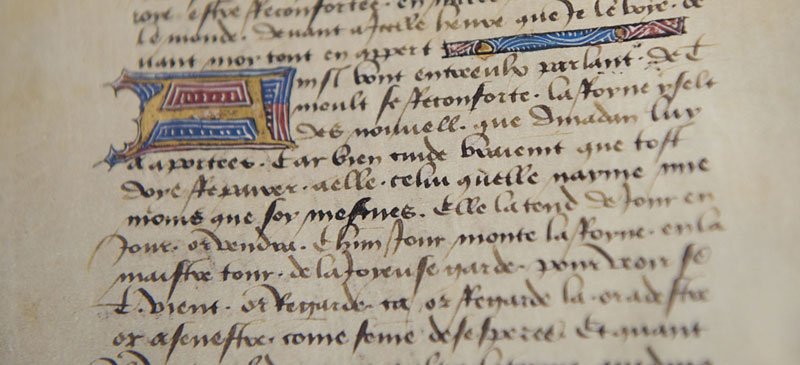 voye. estre reconfortee. en
le monde. devant icelle heure. que je le voye. de
vant moy tout en appert
Ainsi vont entreulx parlant. de T
moult se reconforte. la royne yselt
des nouvell. que dinadan luy
a aportees. Car bien cuide vraiemt que tost
doye repairer. aelle. celui quelle nayme mie
moins que soy mesmes. Elle latend de jour en
jour. or vendra. Chun jour monte la royne. en la
maistre tour. de la joyeuse garde. pour veoir se
T. vient. or regarde. ca. or regarde la. or a destre
or a senestre. come feme desesperee. Et quant